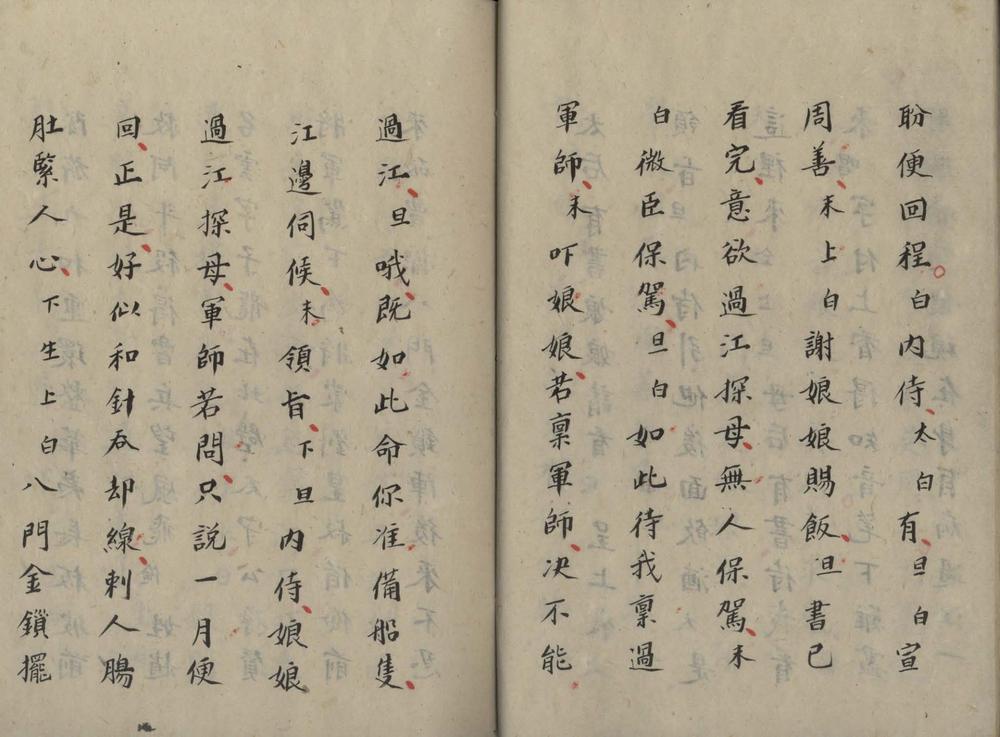 盼便回程。白內侍、太白有、旦白宣
周善、末上白謝娘娘賜飯、旦書已
看完、意欲過江探母、無人保駕、末
白微臣保駕、旦白如此待我稟過
軍師、末吓娘娘、若稟軍師、决不能
過江、旦哦、既如此命你准備船隻、
江邊伺候、末領旨、下旦內侍、娘娘
過江探母、軍師若問、只說一月便
回、正是、好似和針吞却線、刺人腸
肚緊人心、下生上白八門金鎖擺